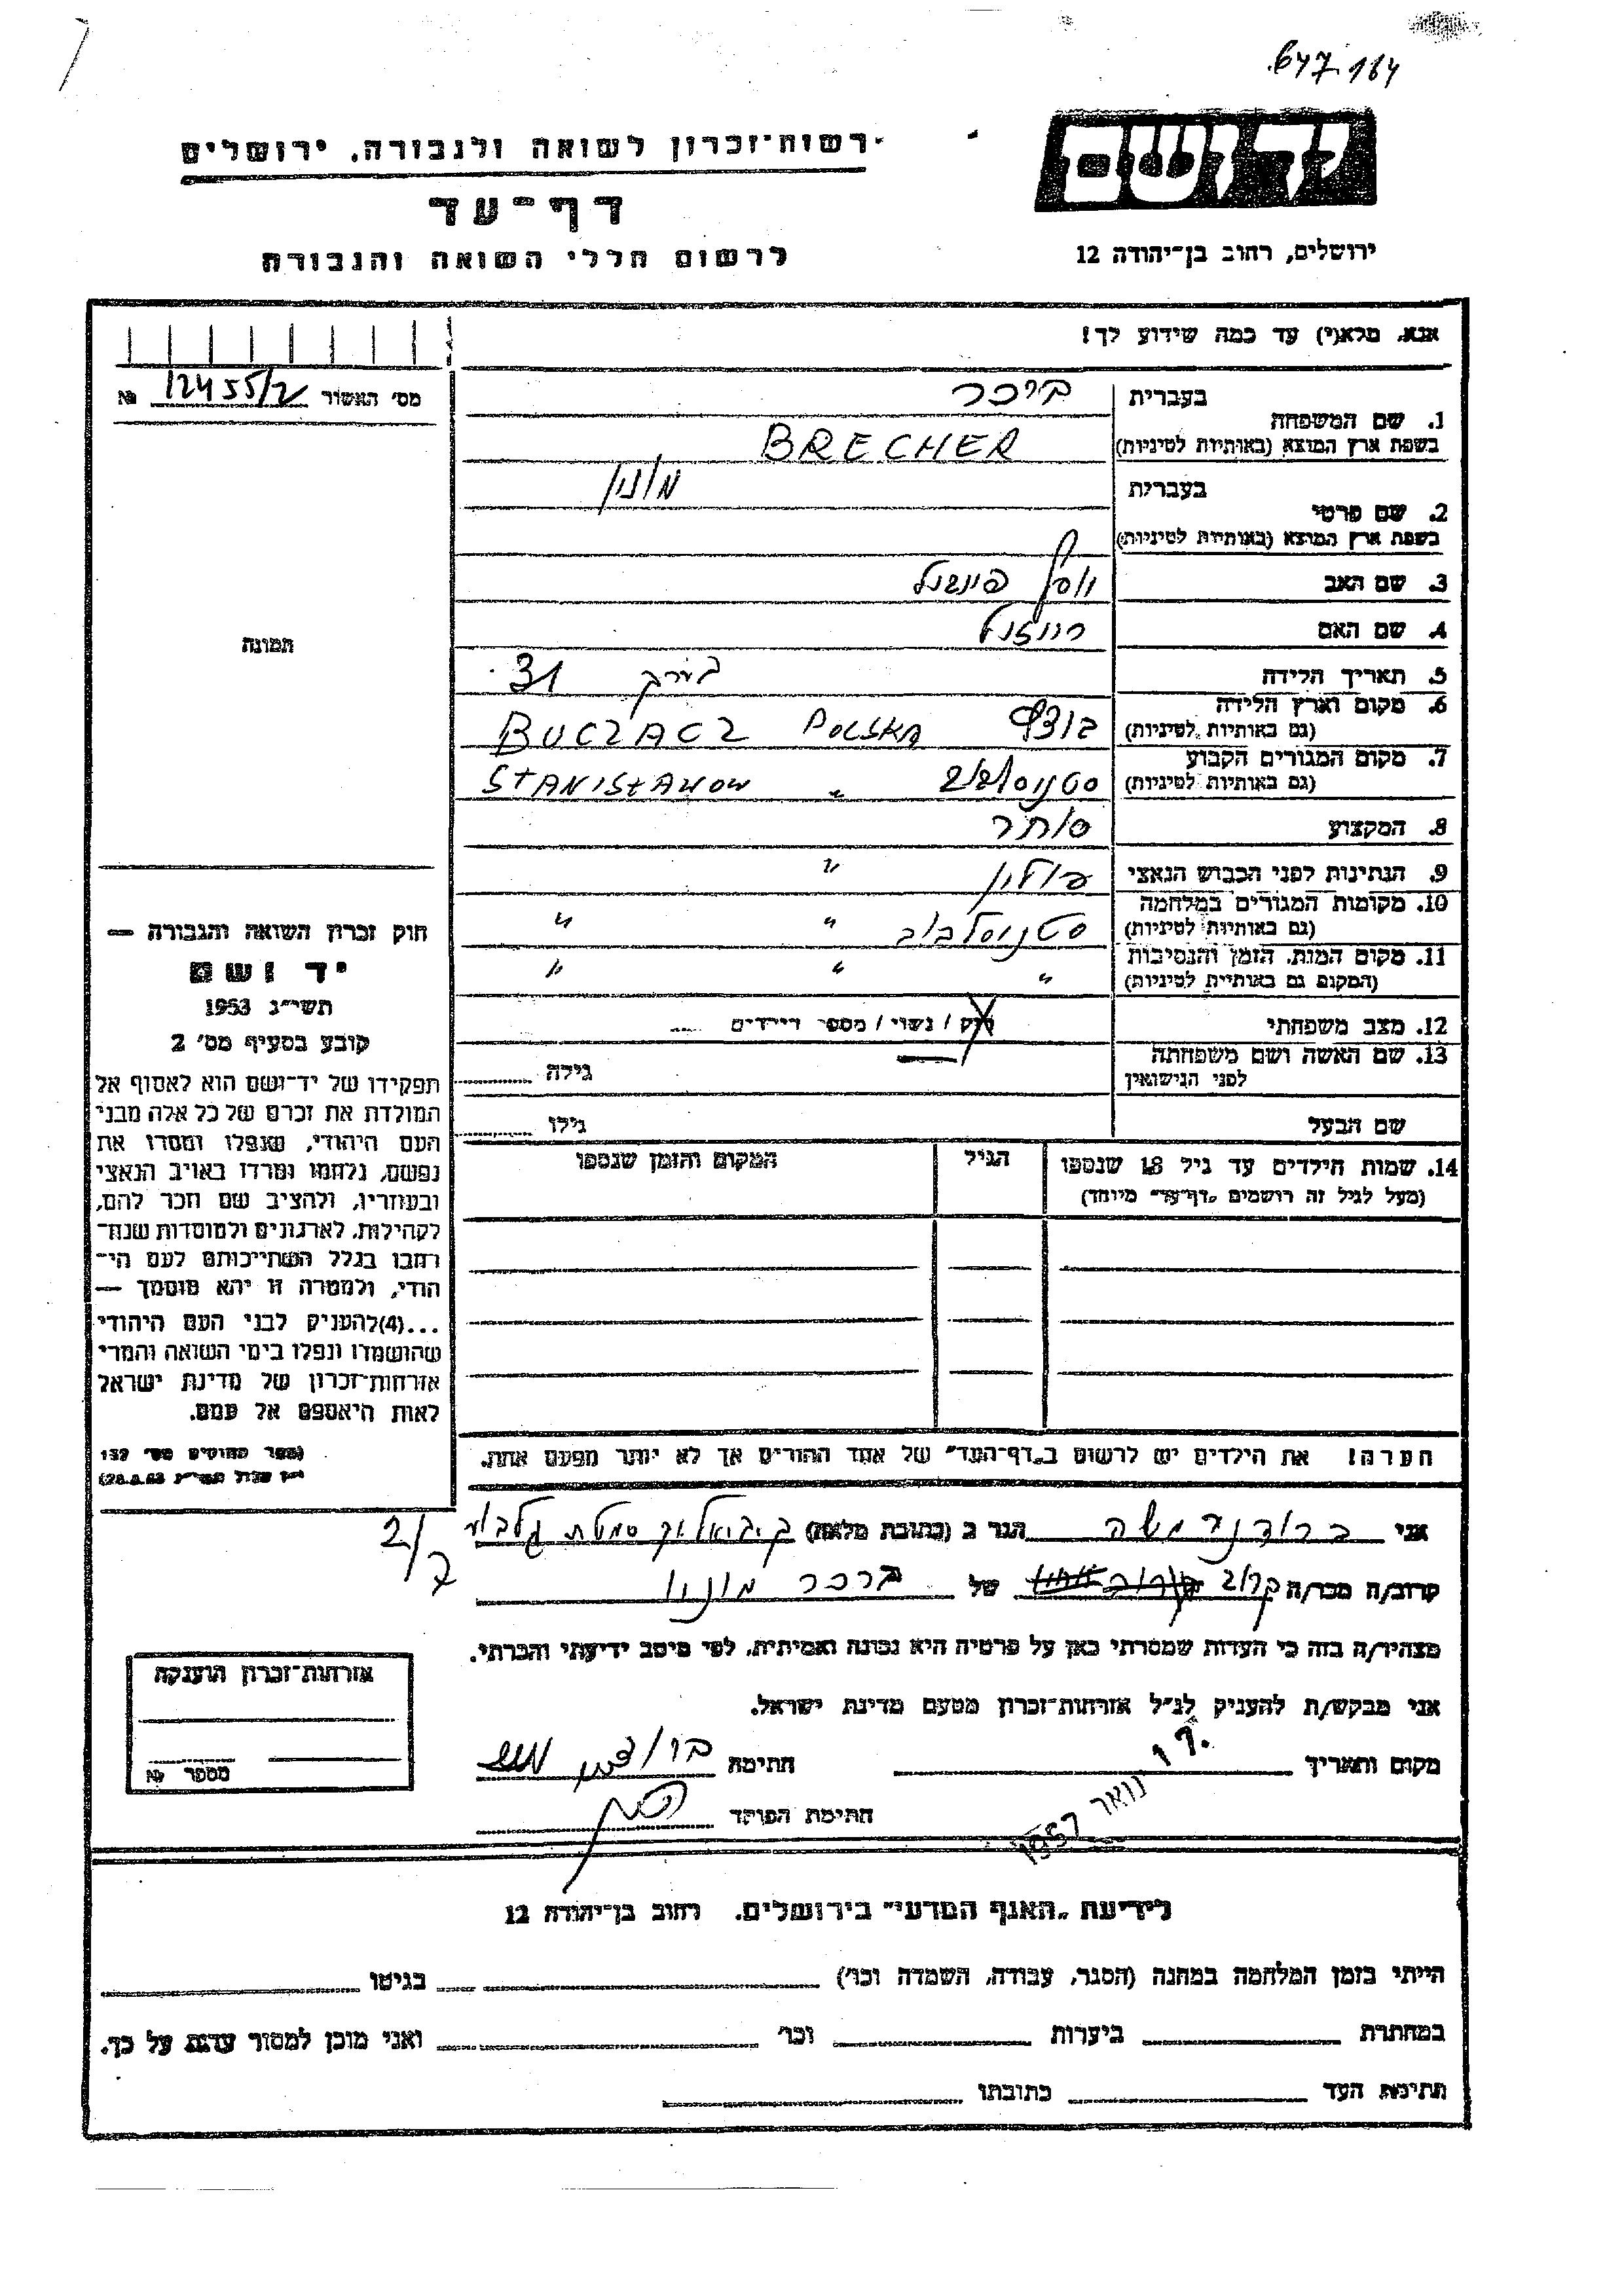 647.164
יד ושם
רשות־זכרון לשואה ולגבורה, ירושלים
דף־עד
לרשום חללי השואה והגבורה
ירושלים, רחוב בן־יהודה 12
אנא, מלא(י) עד כמה שידוע לך!
מס׳ האשור 12455/2 №
תמונה
1. שם המשפחה
בעברית ברכר
בשפת ארץ המוצא (באותיות לטיניות) BRECHER
2. שם פרטי
בעברית מוניו
בשפת ארץ המוצא (באותיות לטיניות)
3. שם האב
4. שם האם
5. תאריך הלידה בערך 31
6. מקום וארץ הלידה
(גם באותיות לטיניות) BUCZACZ POLSKA
7. מקום המגורים הקבוע
(גם באותיות לטיניות) STANISŁAWOW "
8. המקצוע סוחר
9. הנתינות לפני הכבוש הנאצי פולין "
10. מקומות המגורים במלחמה
(גם באותיות לטיניות) סטניסלבוב " "
11. מקום המות, הזמן והנסיבות
(המקום גם באותיות לטיניות) " " "
12. מצב משפחתי רוק / נשוי / מספר הילדים
13. שם האשה ושם משפחתה
לפני הנישואין גילה
שם הבעל גילו
14. שמות הילדים עד גיל 18 שנספו
(מעל לגיל זה רושמים „דף־עד״ מיוחד)
הגיל
המקום והזמן שנספו
הערה! את הילדים יש לרשום ב„דף־העד״ של אחד ההורים אך לא יותר מפעם אחת.
חוק זכרון השואה והגבורה —
יד ושם
תשי״ג 1953
קובע בסעיף מס׳ 2
תפקידו של יד־ושם הוא לאסוף אל
המולדת את זכרם של כל אלה מבני
העם היהודי, שנפלו ומסרו את
נפשם, נלחמו ומרדו באויב הנאצי
ובעוזריו, ולהציב שם וזכר להם,
לקהילות, לארגונים ולמוסדות שנח־
רבו בגלל השתייכותם לעם הי־
הודי, ולמטרה זו יהא מוסמך —
...(4)להעניק לבני העם היהודי
שהושמדו ונפלו בימי השואה והמרי
אזרחות־זכרון של מדינת ישראל
לאות היאספם אל עמם.
(ספר החוקים מס׳ 132
אני ברודנר משה הגר ב (כתובת מלאה)
2/7
קרוב/ה מכר/ה קרוב של ברכר מוניו
מצהיר/ה בזה כי העדות שמסרתי כאן על פרטיה היא נכונה ואמיתית, לפי מיטב ידיעתי והכרתי.
אני מבקש/ת להעניק לנ״ל אזרחות־זכרון מטעם מדינת ישראל.
מקום ותאריך ינואר 1957 חתימה
חתימת הפוקד
אזרחות־זכרון הוענקה
מספר №
לידיעת „האגף המדעי״ בירושלים, רחוב בן־יהודה 12
הייתי בזמן המלחמה במחנה (הסגר, עבודה, השמדה וכו׳) בגיטו
במחתרת ביערות וכו׳ ואני מוכן למסור עדות על כך.
חתימת העד כתובתו